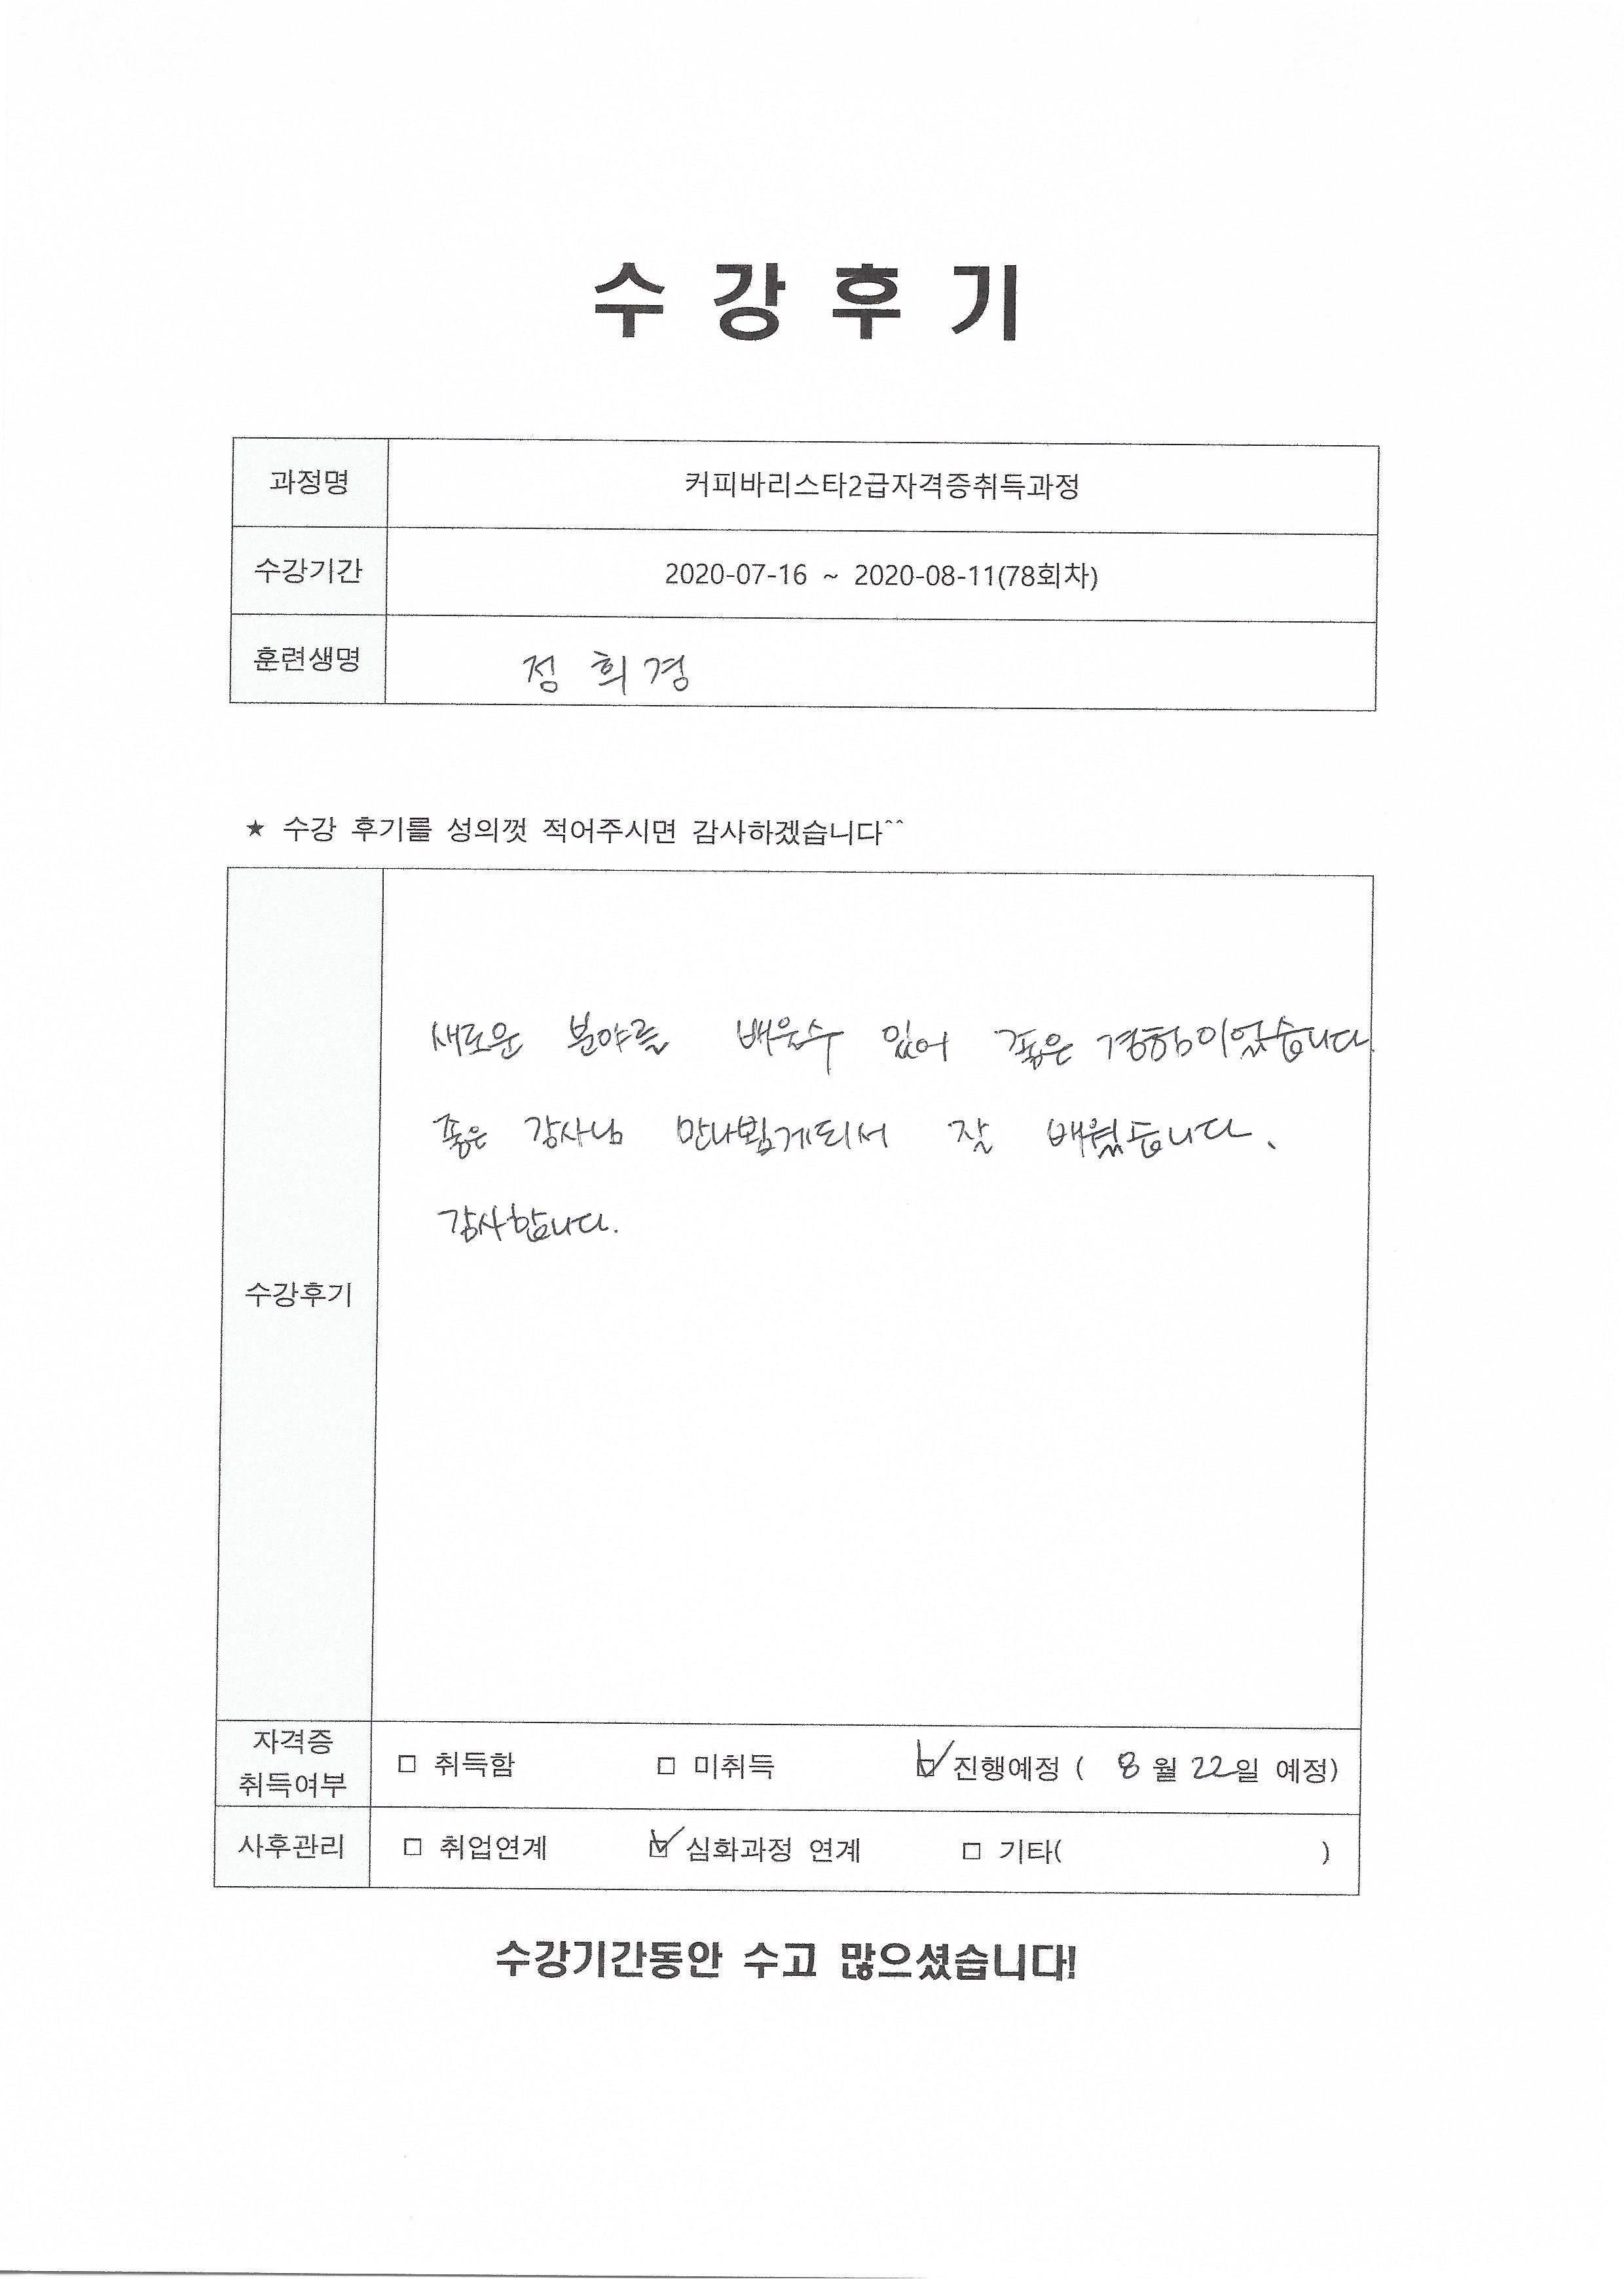 수 강 후 기
과정명 커피바리스타2급자격증취득과정
수강기간 2020-07-16 ~ 2020-08-11(78회차)
훈련생명 정 희 경
★ 수강 후기를 성의껏 적어주시면 감사하겠습니다^^
새로운 분야를 배울수 있어 좋은 경험이었습니다.
좋은 강사님 만나뵙게되서 잘 배웠습니다.
감사합니다.
수강후기
자격증
취득여부
□ 취득함 □ 미취득 ☑ 진행예정 ( 8 월 22일 예정)
사후관리 □ 취업연계 ☑ 심화과정 연계 □ 기타( )
수강기간동안 수고 많으셨습니다!